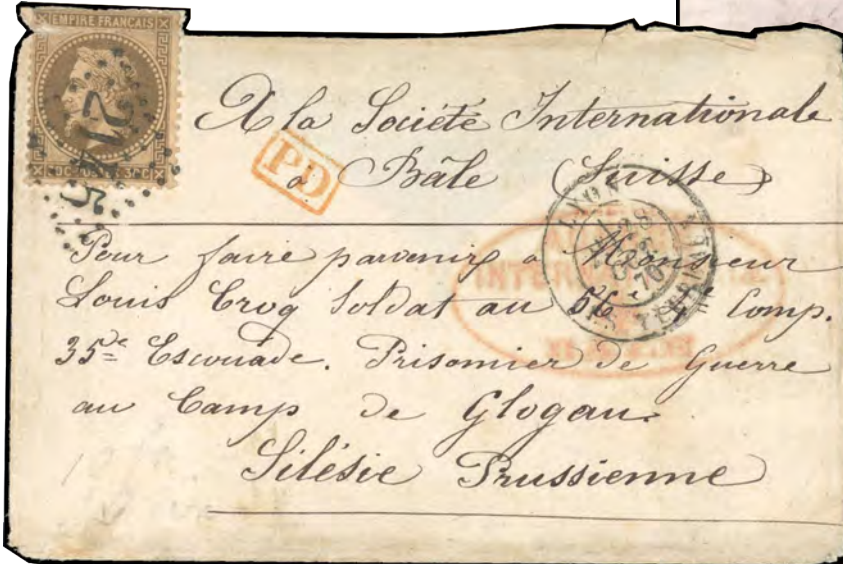 EMPIRE FRANÇAIS
2145
A la Société Internationale
PD
à Bâle (Suisse)
LYON
70
Pour faire parvenir à Monsieur
Louis Croq Soldat au 56 4e Comp.
35e Escouade. Prisonnier de Guerre
au Camp de Glogau.
Silésie Prussienne